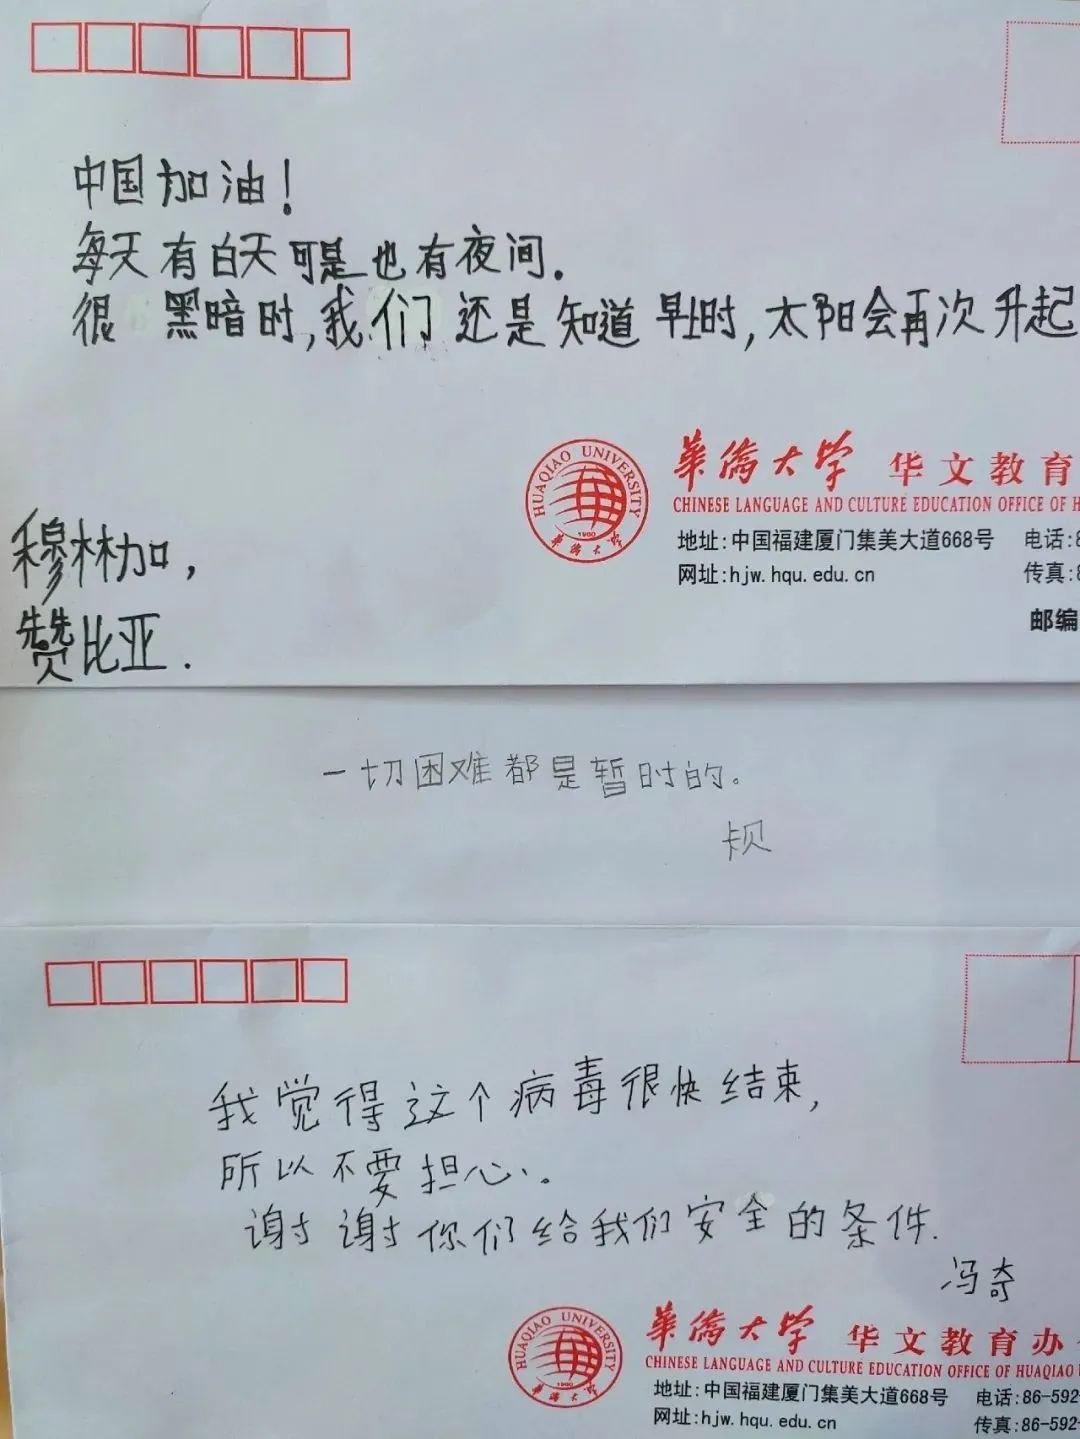 中国加油！
每天有白天可是也有夜间.
很 黑暗时,我们 还是知道早上时,太阳会再次升起
HUAQIAO UNIVERSITY
1960
華僑大学
華僑大学 华文教育
CHINESE LANGUAGE AND CULTURE EDUCATION OFFICE OF H
地址:中国福建厦门集美大道668号 电话:8
网址:hjw.hqu.edu.cn 传真:8
邮编
穆林加,
赞比亚.
一切困难都是暂时的。
我觉得这个病毒很快结束,
所以不要担心。
谢谢你们给我们安全的条件.
冯奇
HUAQIAO UNIVERSITY
1960
華僑大学
華僑大学 华文教育办
CHINESE LANGUAGE AND CULTURE EDUCATION OFFICE OF HUAQIAO
地址:中国福建厦门集美大道668号 电话:86-592
网址:hjw.hqu.edu.cn 传真:86-592